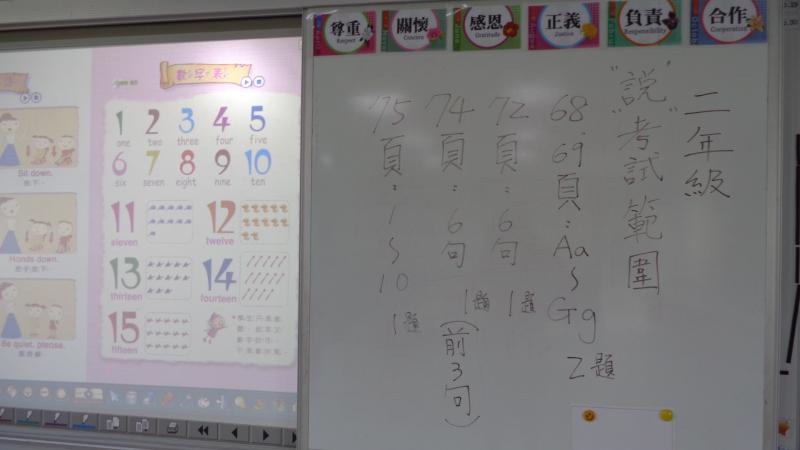 尊重
Respect
關懷
Concern
感恩
Gratitude
正義
Justice
負責
Responsibility
合作
Cooperation
二年級
"說"考試範圍
68.69頁:Aa~Gg 2題
72頁:6句 1題
74頁:6句 1題
(前3句)
75頁:1~10 1題
數字表
1 2 3 4 5
one two three four five
6 7 8 9 10
six seven eight nine ten
11 12
eleven twelve
13 14
thirteen fourteen
15
fifteen
Sit down.
坐下。
Hands down.
Be quiet, please.